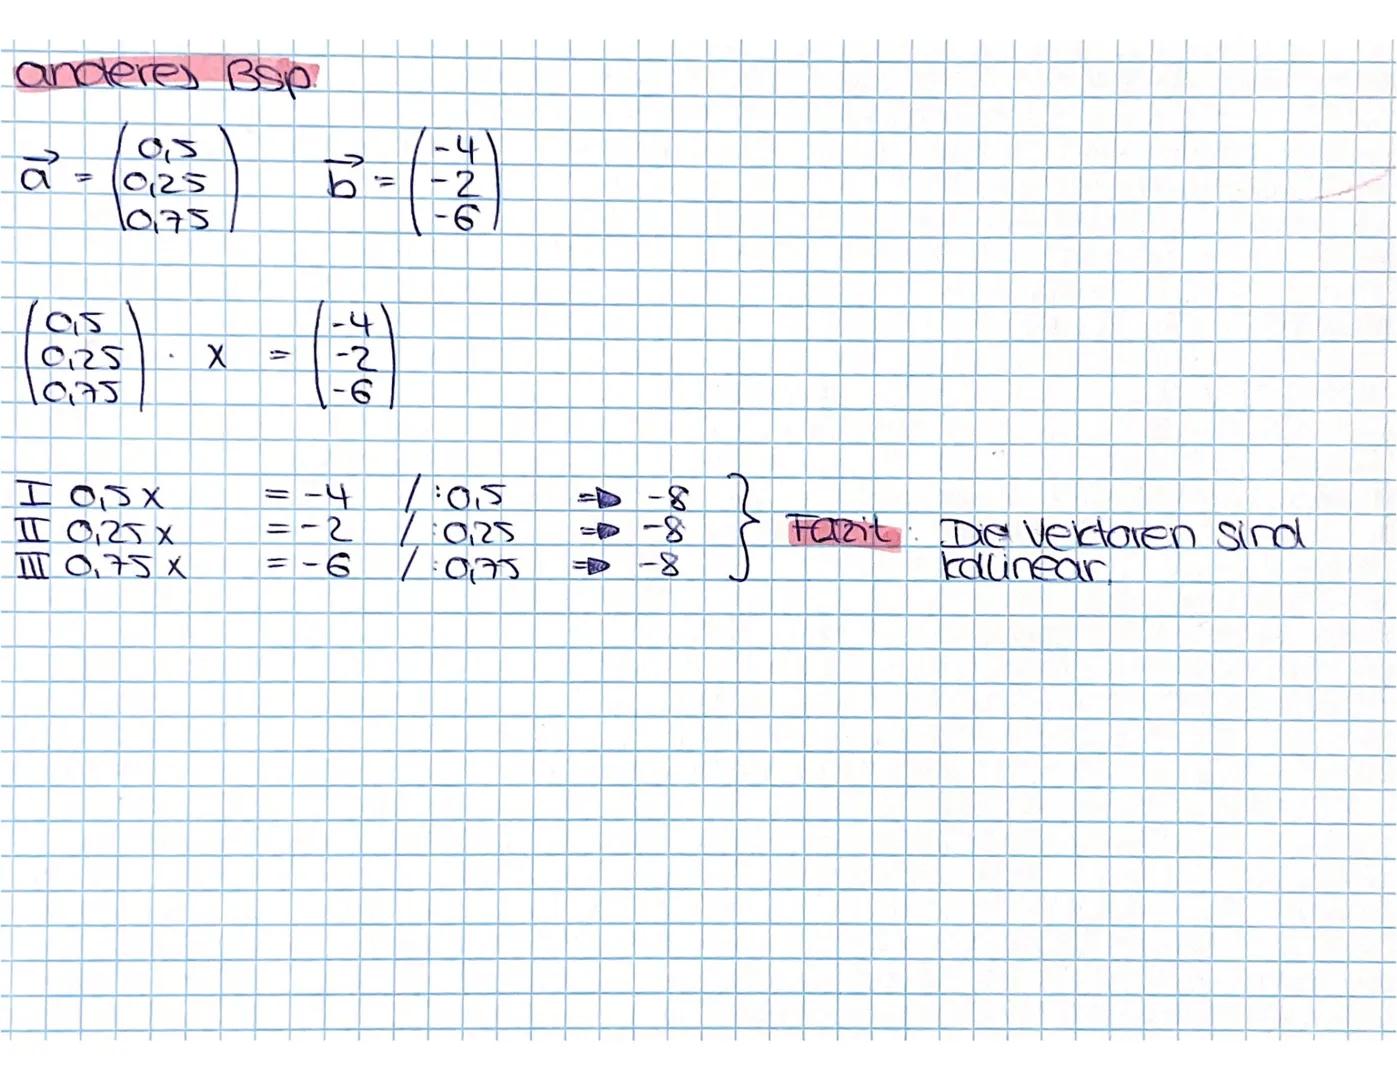 anderes Bsp.
a⃗ = (0,5 0,25 0,75) b⃗ = (-4 -2 -6)
(0,5 0,25 0,75) · x = (-4 -2 -6)
I 0,5x = -4 / :0,5 => -8
II 0,25x = -2 / :0,25 => -8
III 0,75x = -6 / :0,75 => -8
} Fazit: Die Vektoren sind
kollinear.